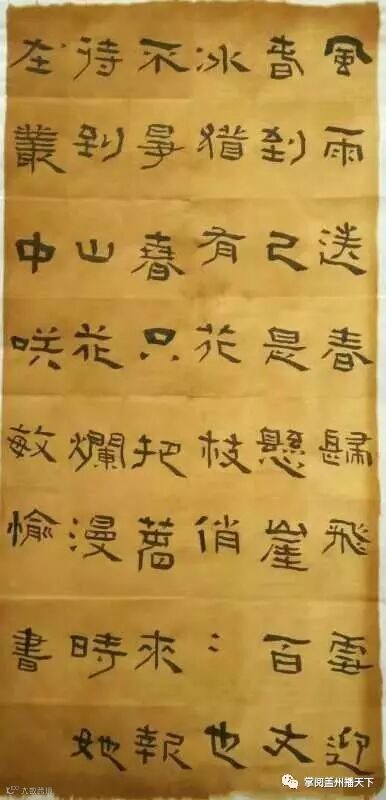 風雨送春歸飛雪迎
春到已是懸崖百丈
冰猶有花枝俏：也
不爭春只把春來報
待到山花爛漫時她
在叢中咲敏愉書
大数跨境
掌阅盖州播天下